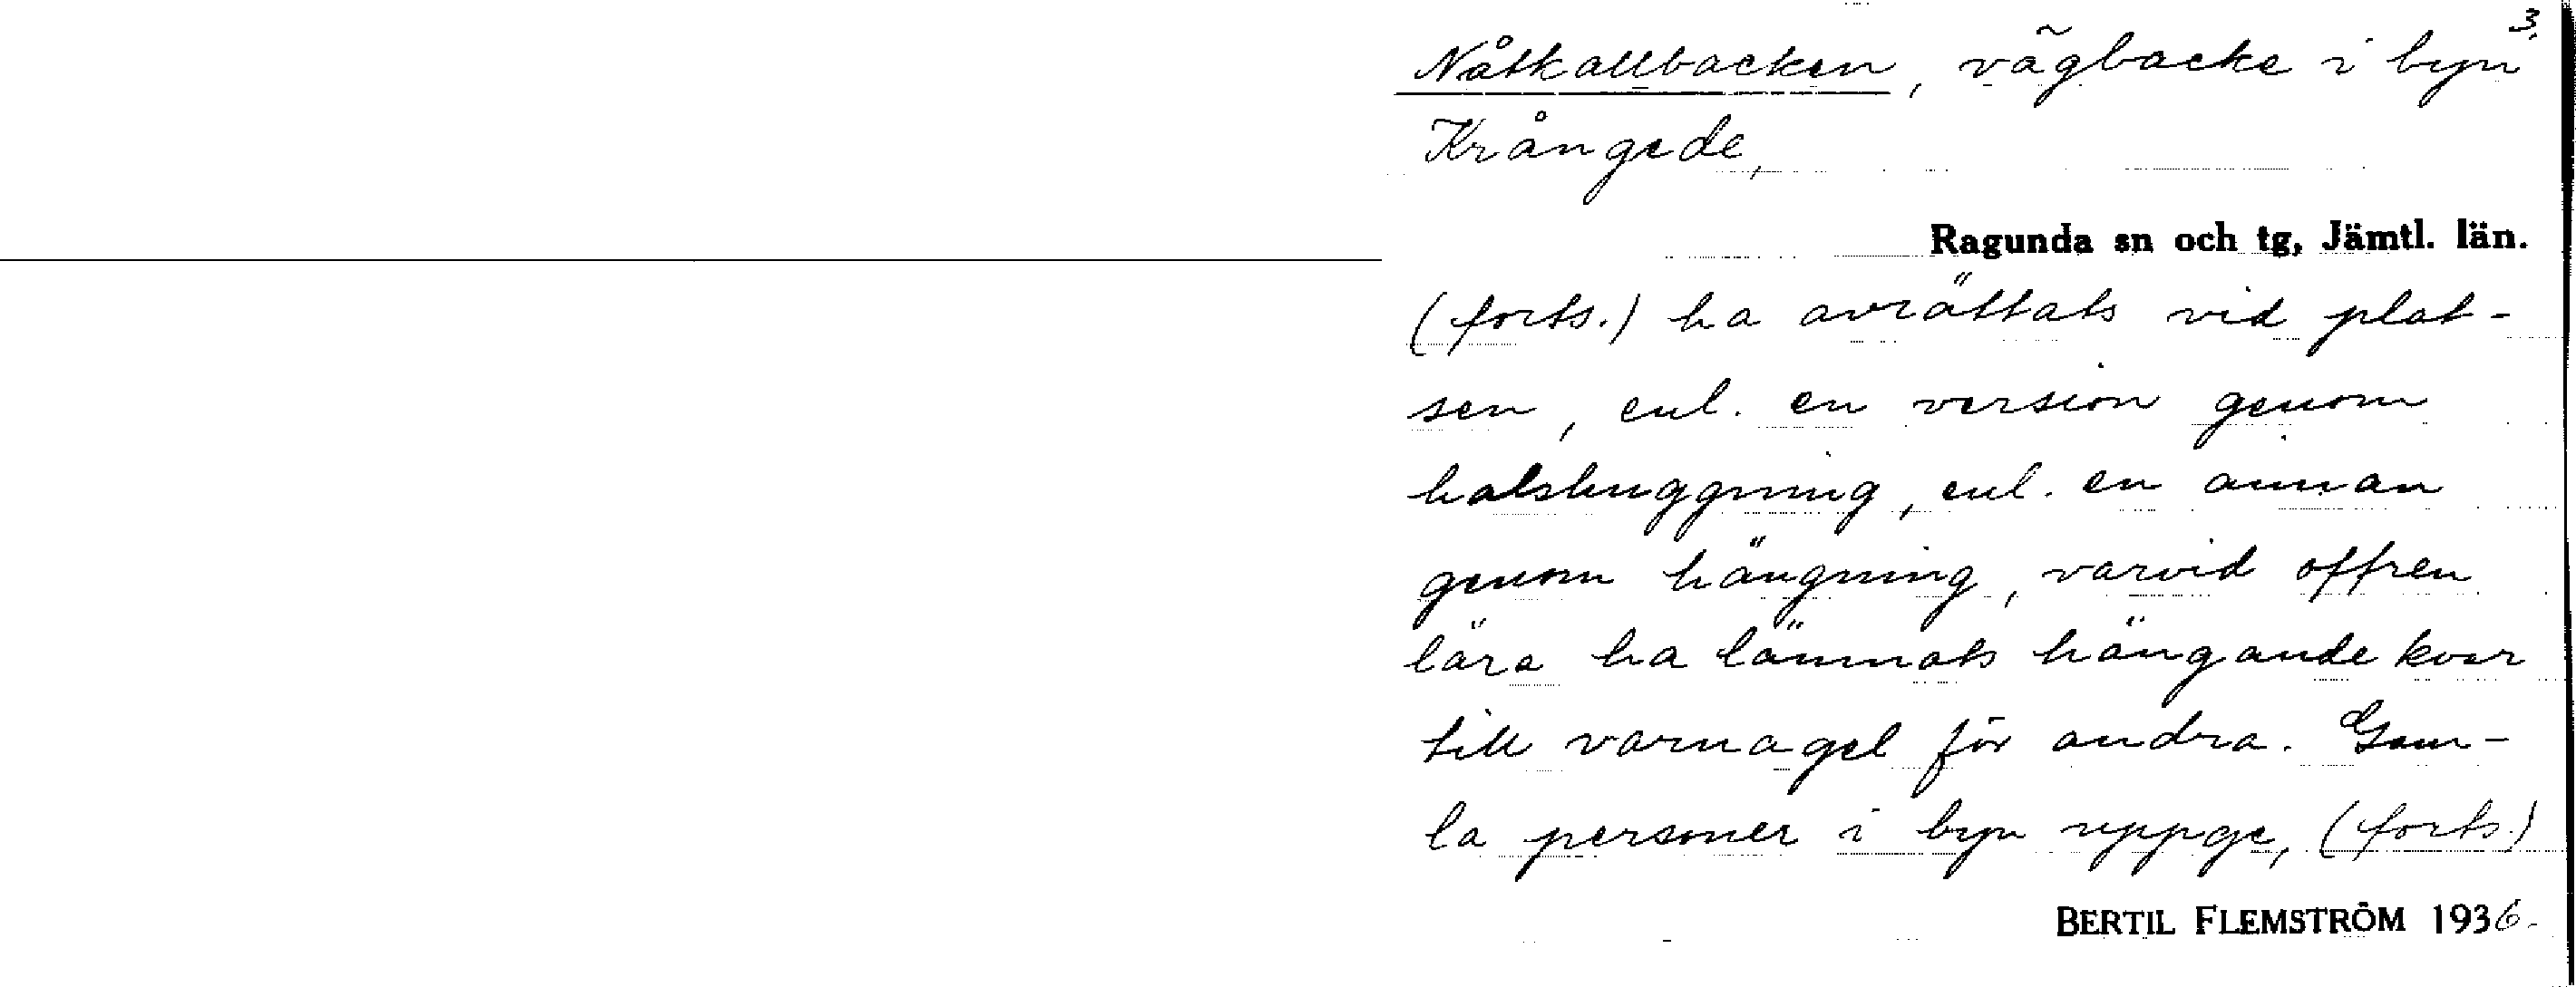 3.
Nåtkallbacken, vägbacke i byn
Krångede,
Ragunda sn och tg, Jämtl. län.
(forts.) ha avrättats vid plat-
sen, enl. en version genom
halshuggning, enl. en annan
genom hängning, varvid offren
lära ha lämnats hängande kvar
till varnagel för andra. Gam-
la personer i byn uppge, (forts.)
BERTIL FLEMSTRÖM 1936.